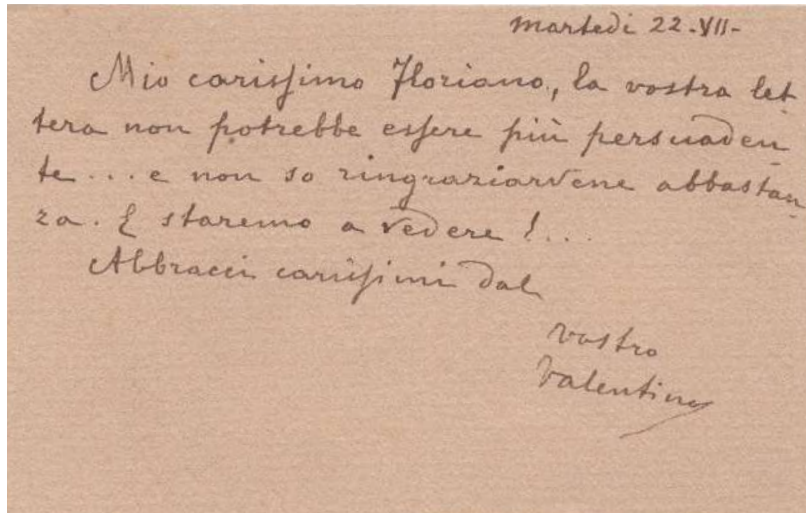 martedì 22-VII-
Mio carissimo Floriano, la vostra let
tera non potrebbe essere più persuaden
te... e non so ringraziarvene abbastan
za. E staremo a vedere!...
Abbracci carissimi dal
vostro
Valentino